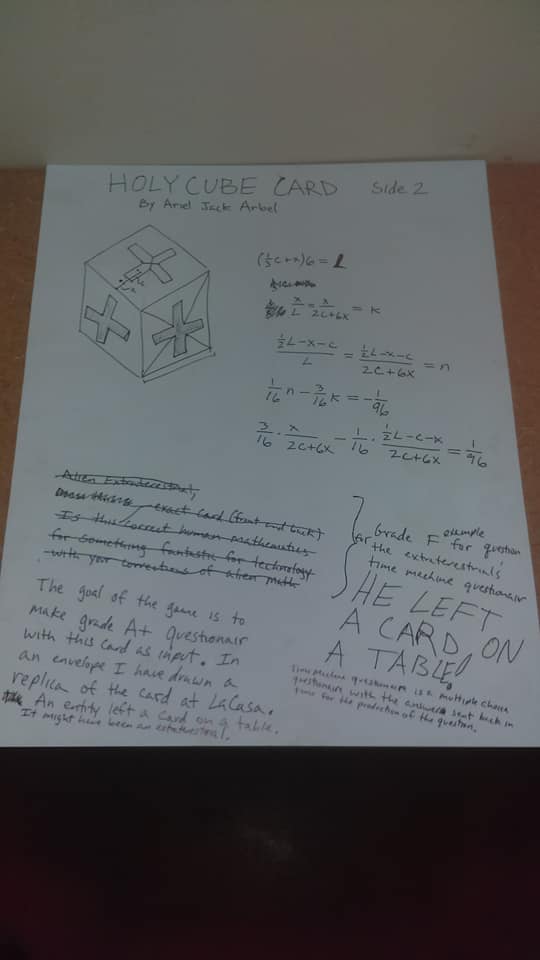 HOLY CUBE CARD Side 2
By Ariel Jack Arbel
(⅓c+x)6 = L
x/L = x/2c+6x = k
½L-x-c/L = ½L-x-c/2c+6x = n
1/16 n - 3/16 k = -1/96
3/16 · x/2c+6x - 1/16 · ½L-c-x/2c+6x = 1/96
Alien Extraterestrial,
exact card (front and back)
Is this correct human mathematics
for something fantastic for technology
with your corrections of alien math
The goal of the game is to
make grade A+ Questionair
with this card as input. In
an envelope I have drawn a
replica of the card at LaCasa.
An entity left a card on a table.
It might have been an extraterestrial.
Grade F example
for question
the extraterestrial's
time mechine questionair
HE LEFT
A CARD ON
A TABLE!
time mechine questionair is a multiple choice
questionair with the answers sent back in
time for the production of the question.